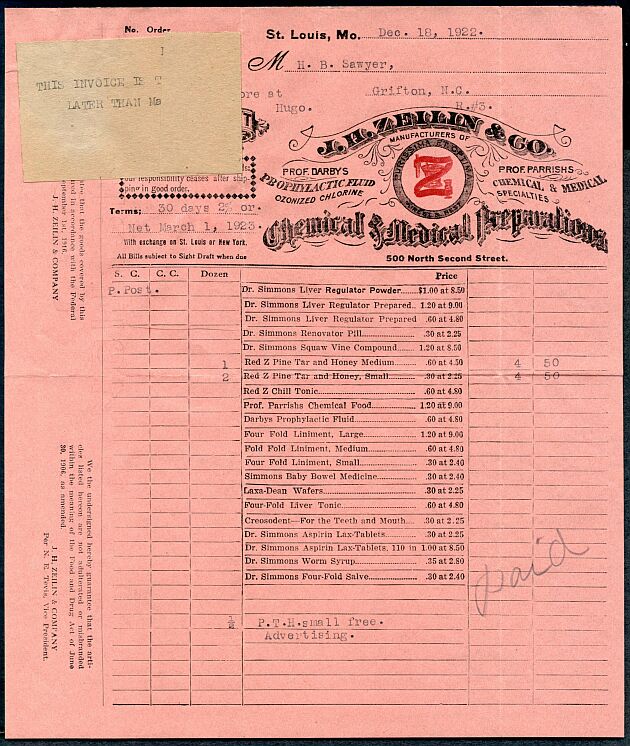 No. Order
St. Louis, Mo. Dec. 18, 1922.
M H. B. Sawyer,
THIS INVOICE IS
LATER THAN
ore at Grifton, N.C.
Hugo. R.#3.
J. H. ZEILIN & CO.
MANUFACTURERS OF
PROF. DARBYS
PROPHYLACTIC FLUID
OZONIZED CHLORINE
Z
PROF. PARRISHS
CHEMICAL & MEDICAL
SPECIALTIES
Chemical & Medical Preparations
500 North Second Street.
your responsibility ceases after ship-
ping in good order.
Terms; 30 days 2% or.
Net March 1, 1923.
With exchange on St. Louis or New York.
All Bills subject to Sight Draft when due
S. C. C. C. Dozen Price
P. Post. Dr. Simmons Liver Regulator Powder $1.00 at 8.50
Dr. Simmons Liver Regulator Prepared 1.20 at 9.00
Dr. Simmons Liver Regulator Prepared .60 at 4.80
Dr. Simmons Renovator Pill .30 at 2.25
Dr. Simmons Squaw Vine Compound 1.20 at 8.50
1 Red Z Pine Tar and Honey Medium .60 at 4.50 4 50
2 Red Z Pine Tar and Honey, Small .30 at 2.25 4 50
Red Z Chill Tonic .60 at 4.80
Prof. Parrishs Chemical Food 1.20 at 9.00
Darbys Prophylactic Fluid .60 at 4.80
Four Fold Liniment, Large 1.20 at 9.00
Fold Fold Liniment, Medium .60 at 4.80
Four Fold Liniment, Small .30 at 2.40
Simmons Baby Bowel Medicine .30 at 2.40
Laxa-Dean Wafers .30 at 2.25
Four-Fold Liver Tonic .60 at 4.80
Creosodent—For the Teeth and Mouth .30 at 2.25
Dr. Simmons Aspirin Lax-Tablets .30 at 2.25
Dr. Simmons Aspirin Lax-Tablets, 110 in 1.00 at 8.50
Dr. Simmons Worm Syrup .35 at 2.80
Dr. Simmons Four-Fold Salve .30 at 2.40
paid
½ P.T.H.small free.
Advertising.
tee that the goods covered by this
in accordance with the Federal
September 1st, 1916.
J. H. ZEILIN & COMPANY
We the undersigned hereby guarantee that the arti-
cles listed hereon are not adulterated or misbranded
within the meaning of the Food and Drug Act of June
30, 1906, as amended.
J. H. ZEILIN & COMPANY
Per N. E. Tevis, Vice President.